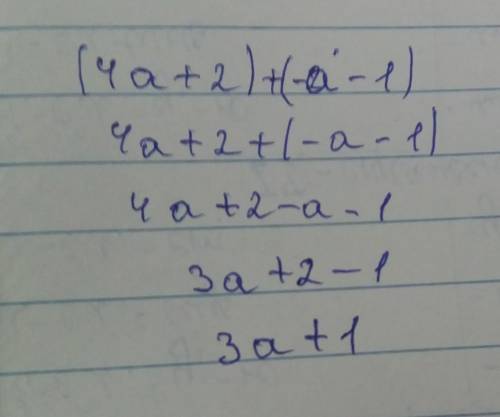 (4a+2)+(-a-1)
4a+2+(-a-1)
4a+2-a-1
3a+2-1
3a+1